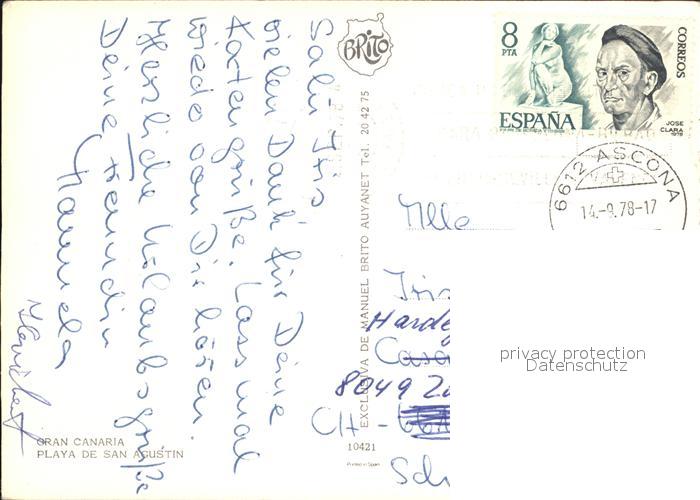 Salü Iris
vielen Dank für Deine
Kartengrüße. Lass mal
wieder von Dir hören.
Herzliche Urlaubsgrüße
Deine Freundin
Manuela
GRAN CANARIA
PLAYA DE SAN AGUSTIN
BRITO
EXCLUSIVA DE MANUEL BRITO AUYANET Tel. 20 42 75
10421
Printed in Spain
8 PTA
CORREOS
ESPAÑA
JOSE CLARA 1978
6612 ASCONA
14.-9.78-17
Mlle
Iris
Harde
Casa
8049 Zü
CH -
Sch
privacy protection
Datenschutz